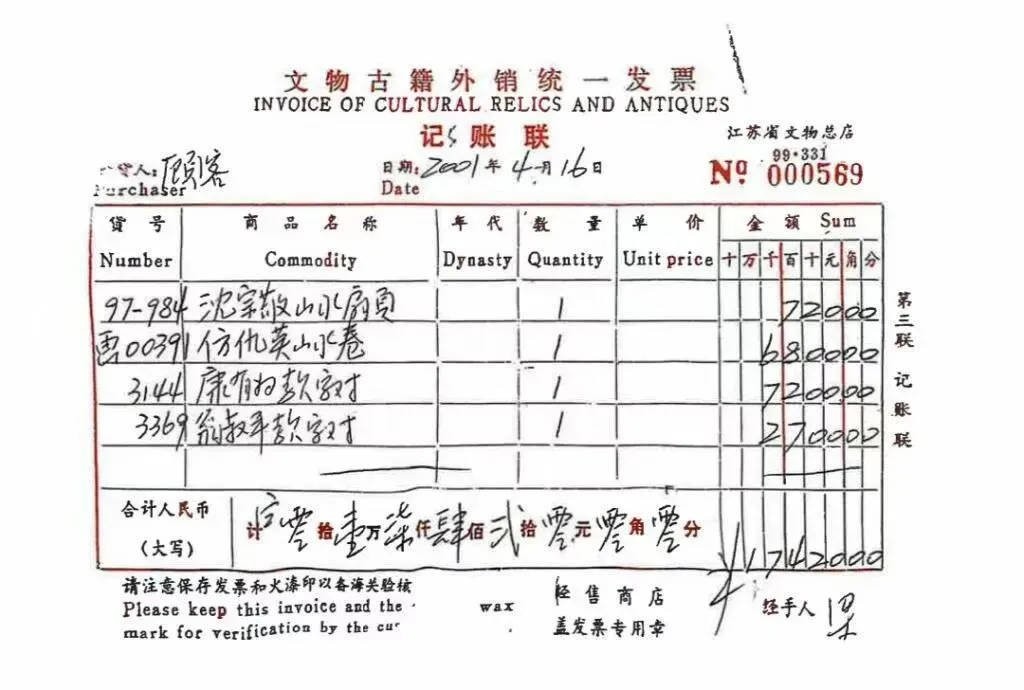 文物古籍外销统一发票
INVOICE OF CULTURAL RELICS AND ANTIQUES
记账联
江苏省文物总店
货人: 顾客
日期: 2001年4月16日
99·331
Purchaser
Date
Nº 000569
货号 商品名称 年代 数量 单价 金额 Sum
Number Commodity Dynasty Quantity Unit price 十万千百十元角分
97-984 沈宗敬山水扇页 1 72000
画00391 仿仇英山水卷 1 680000
3144 康有为款字对 1 720000
3369 翁叔平款字对 1 270000
合计人民币
(大写)
计 零拾壹万柒仟肆佰贰拾零元零角零分
¥1742000
第三联 记账联
请注意保存发票和火漆印以备海关验核
Please keep this invoice and the wax
mark for verification by the cu
经售商店
盖发票专用章
经手人 梁